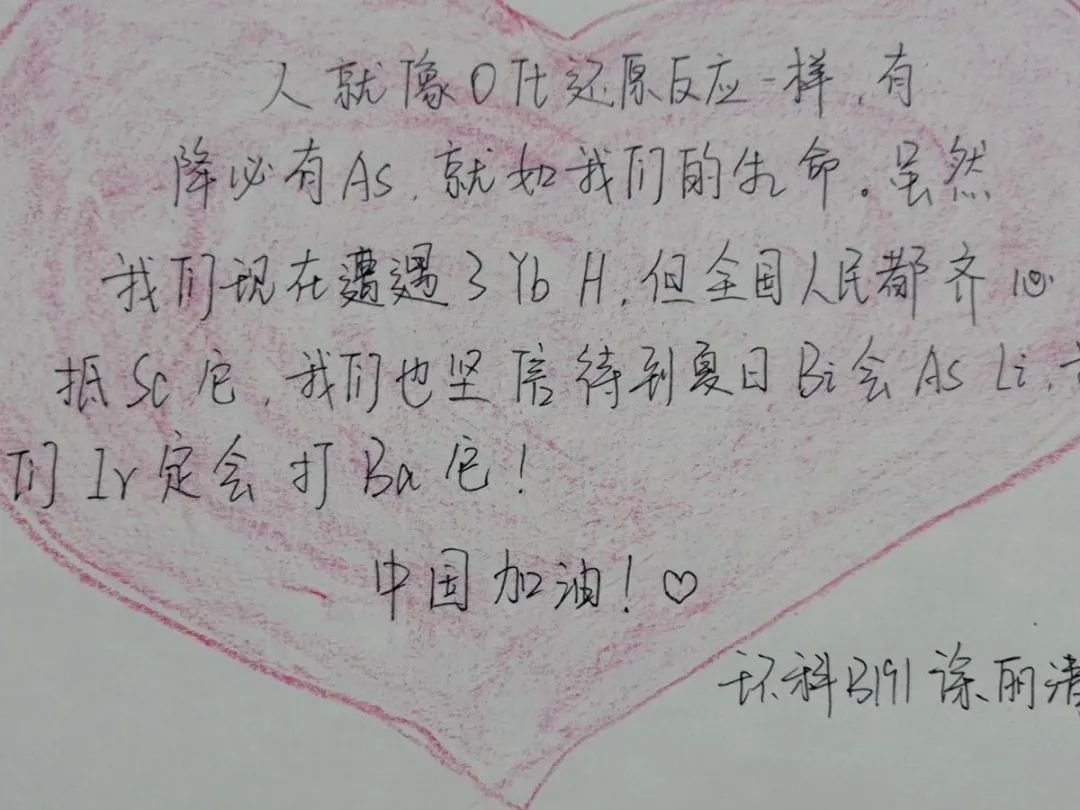 人就像O Tt还原反应一样,有
降必有As,就如我们的生命。虽然
我们现在遭遇了Yb H,但全国人民都齐心
抵Sc它,我们也坚信待到夏日Bi会As Li,
们Ir定会打Ba它!
中国加油!♡
环科B191 涂丽清